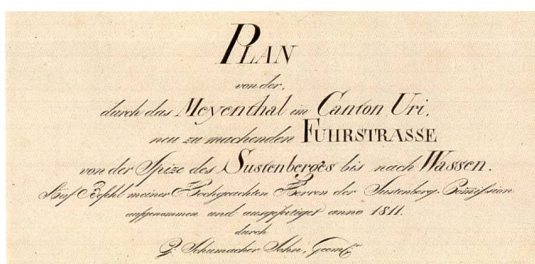 PLAN
von der,
durch das Meyenthal im Canton Uri,
neu zu machenden FUHRSTRASSE
von der Spize des Sustenberges bis nach Wassen.
Auf Befehl meiner Hochgeachten Herren der Sustenberg Comission
aufgenommen und ausgefertiget anno 1811.
durch
Schumacher Sohn, Geom